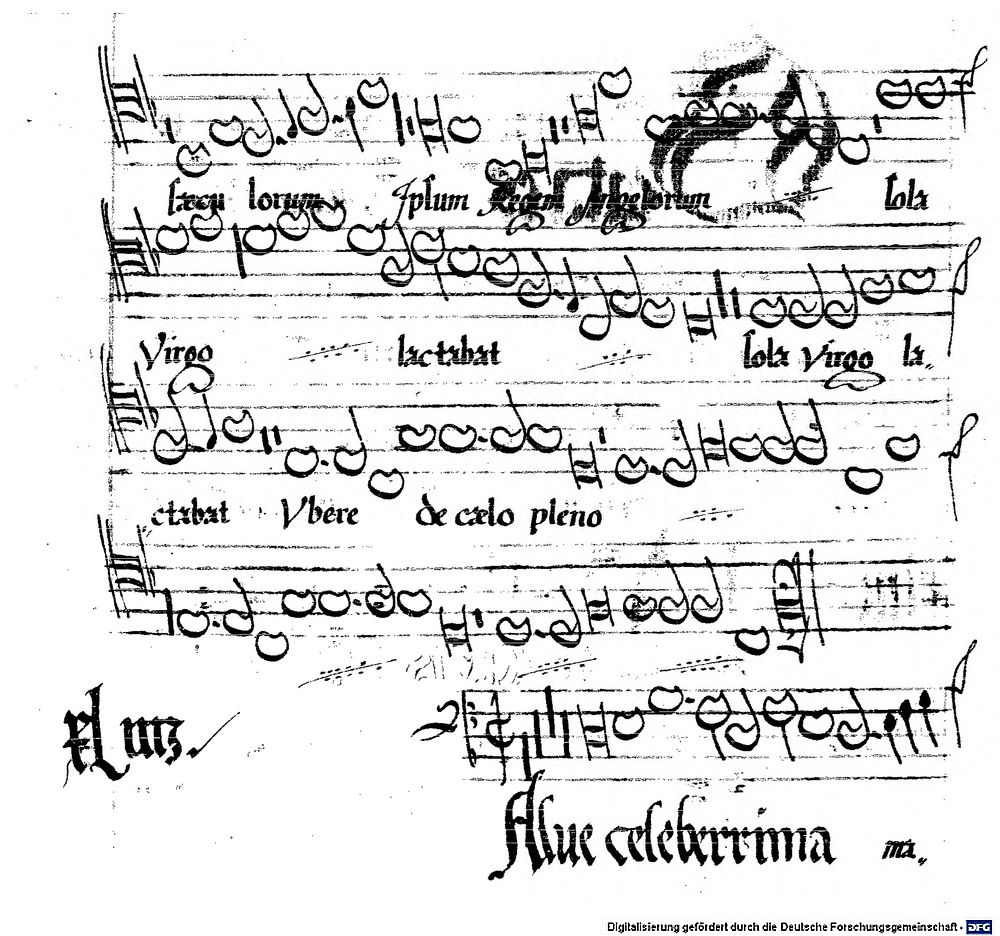 sæcu lorum Ipsum Regem Angelorum sola
Virgo lactabat sola Virgo la„
ctabat Vbere de cælo pleno
Salue celeberrima ma„
Digitalisierung gefördert durch die Deutsche Forschungsgemeinschaft - DFG